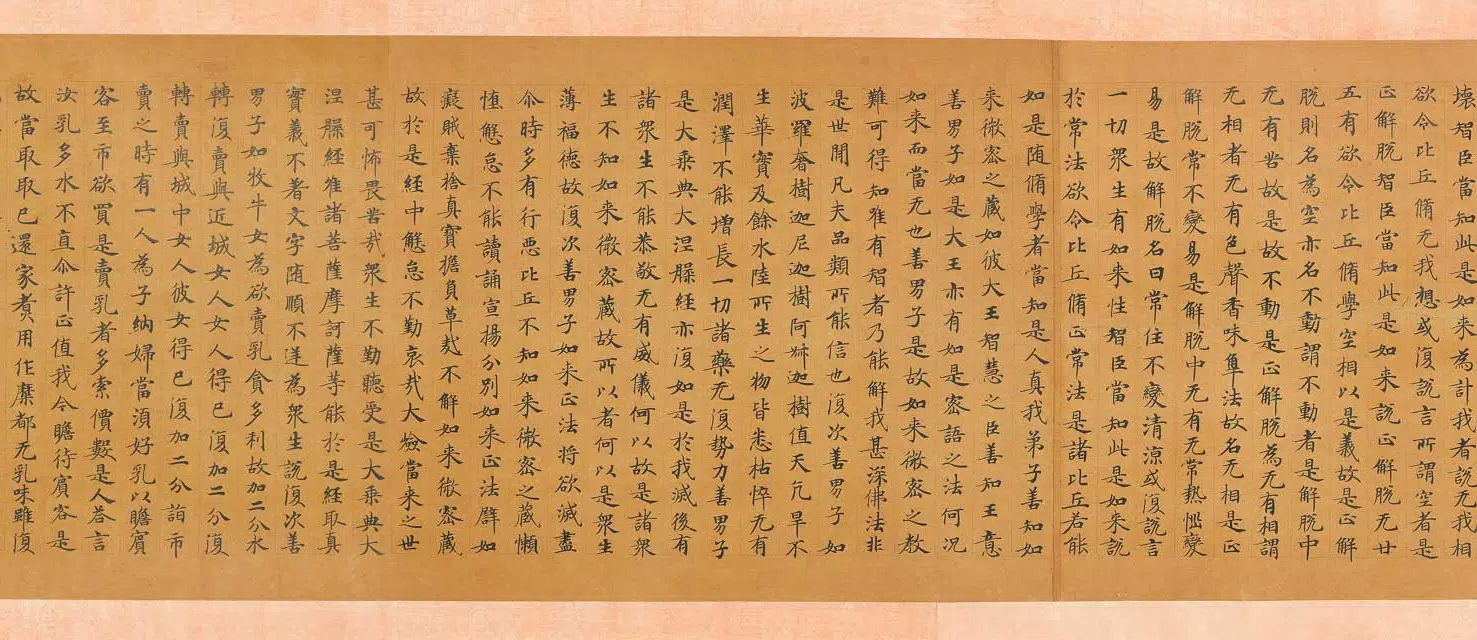 壞智臣當知此是如来為計我者說无我相
欲令比丘脩无我想或復說言所謂空者是
正解脫智臣當知此是如来說正解脫无廿
五有欲令比丘脩學空相以是義故是正解
脫則名為空亦名不動謂不動者是解脫中
无有苦故是故不動是正解脫為无有相謂
无相者无有色聲香味𮕱法故名无相是正
解脫常不變易是解脫中无有无常熱惱變
易是故解脫名曰常住不變清涼或復說言
一切衆生有如来性智臣當知此是如来說
於常法欲令比丘脩正常法是諸比丘若能
如是随脩學者當知是人真我弟子善知如
来微宻之藏如彼大王智慧之臣善知王意
善男子如是大王亦有如是宻語之法何況
如来而當无也善男子是故如来微宻之教
難可得知唯有智者乃能解我甚深佛法非
是世間凡夫品類所能信也復次善男子如
波羅奢樹迦尼迦樹阿𭉨迦樹值天亢旱不
生華實及餘水陸所生之物皆悉枯悴无有
潤澤不能增長一切諸藥无復勢力善男子
是大乘典大涅槃経亦復如是於我滅後有
諸衆生不能恭敬无有威儀何以故是諸衆
生不知如来微宻藏故所以者何以是衆生
薄福德故復次善男子如来正法将欲滅盡
尒時多有行惡比丘不知如来微宻之藏懶
惰懈怠不能讀誦宣揚分別如来正法譬如
癡賊棄捨真寶擔負草䴬不解如来微宻藏
故於是経中懈怠不勤哀哉大險當来之世
甚可怖畏苦哉衆生不勤聽受是大乘典大
涅槃経唯諸菩薩摩訶薩等能於是経取真
實義不著文字随順不逆為衆生說復次善
男子如牧牛女為欲賣乳貪多利故加二分水
轉復賣與近城女人女人得已復加二分復
轉賣與城中女人彼女得已復加二分詣市
賣之時有一人為子納婦當湏好乳以贍賓
客至市欲買是賣乳者多索價數是人荅言
汝乳多水不直尒許正值我今瞻待賓客是
故當取取已還家煮用作糜都无乳味雖復